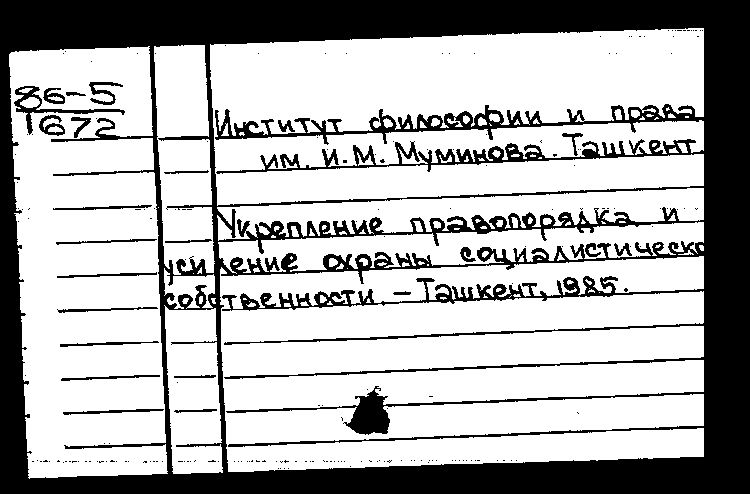 86-5
1672
Институт философии и права
им. И.М. Муминова. Ташкент.
Укрепление правопорядка и
усиление охраны социалистическо
собственности. – Ташкент, 1985.